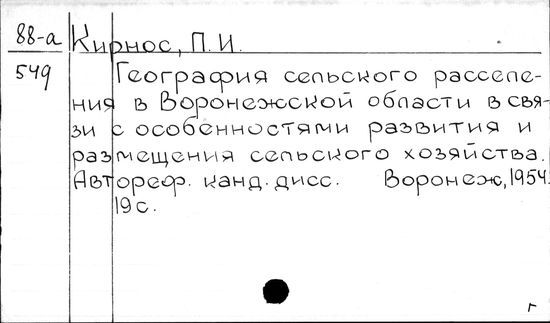 88-а Кирнос, П.И.
549 География сельского расселе-
ния в Воронежской области в свя-
зи с особенностями развития и
размещения сельского хозяйства.
Автореф. канд. дисс. Воронеж, 1954.
19 с.
г